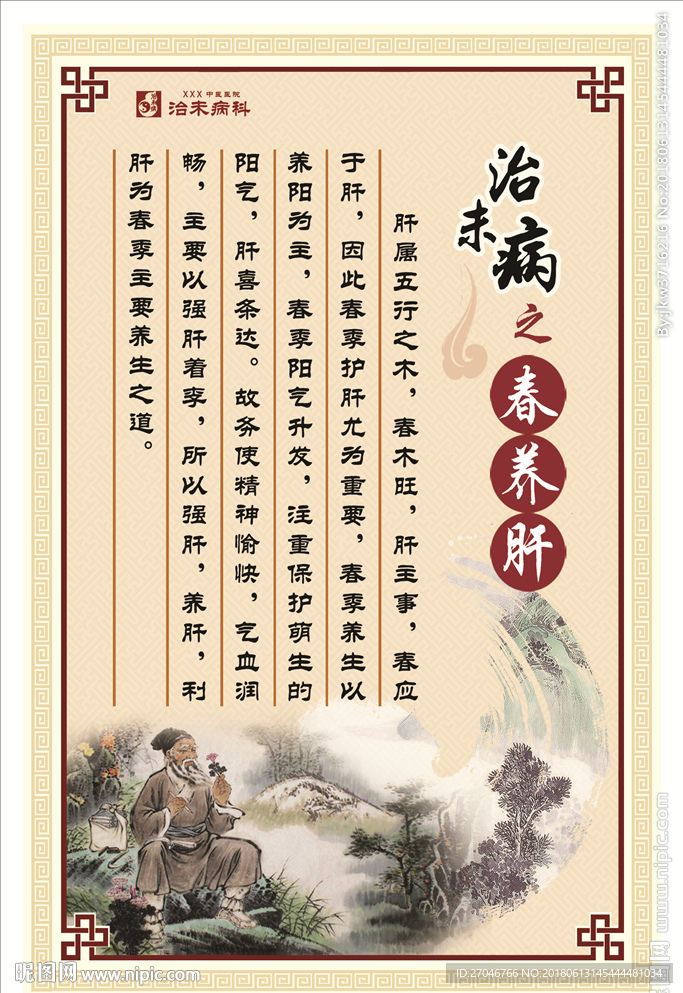 XXX 中医医院
治未病科
治未病之春养肝
肝属五行之木，春木旺，肝主事，春应
于肝，因此春季护肝尤为重要，春季养生以
养阳为主，春季阳气升发，注重保护萌生的
阳气，肝喜条达。故务使精神愉快，气血润
畅，主要以强肝着李，所以强肝，养肝，利
肝为春季主要养生之道。
By:jkw37162116 No:20180613145444481034
www.nipic.com
昵图网 www.nipic.com
ID:27046766 NO:20180613145444481034